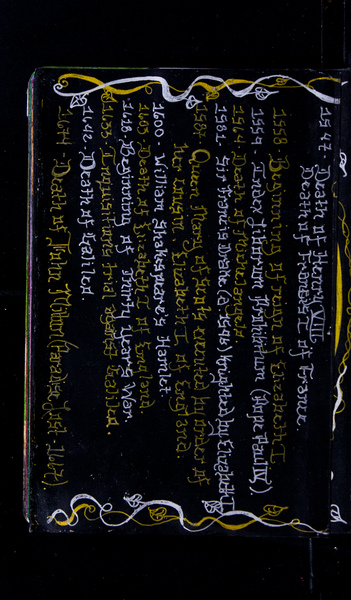 1547. Death of Henry VIII.
Death of Francis I of France.
1558 Beginning of reign of Elizabeth I
1559. Index Librorum Prohibitum (Pope Paul IV)
1564 Death of Michelangelo
1581. Sir Francis Drake (d. 1596) knighted by Elizabeth I
1587. Queen Mary of Scots executed by order of
her cousin Elizabeth I of England.
1600. William Shakespeare's Hamlet
1603 Death of Elizabeth I of England
1618 Beginning of Thirty Years War.
1633. Inquisitions trial against Galileo.
1642. Death of Galileo.
1674. Death of John Milton (Paradise Lost - 1667)